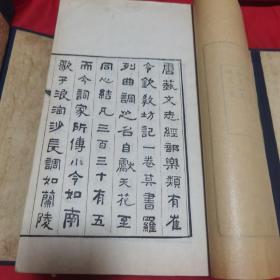 唐藝文志經部樂類有崔
令欽教坊記一卷其書羅
列曲調之名自獻天花至
同心結凡三百三十有五
而今詞家所傳小令如南
歌子浪淘沙長調如蘭陵